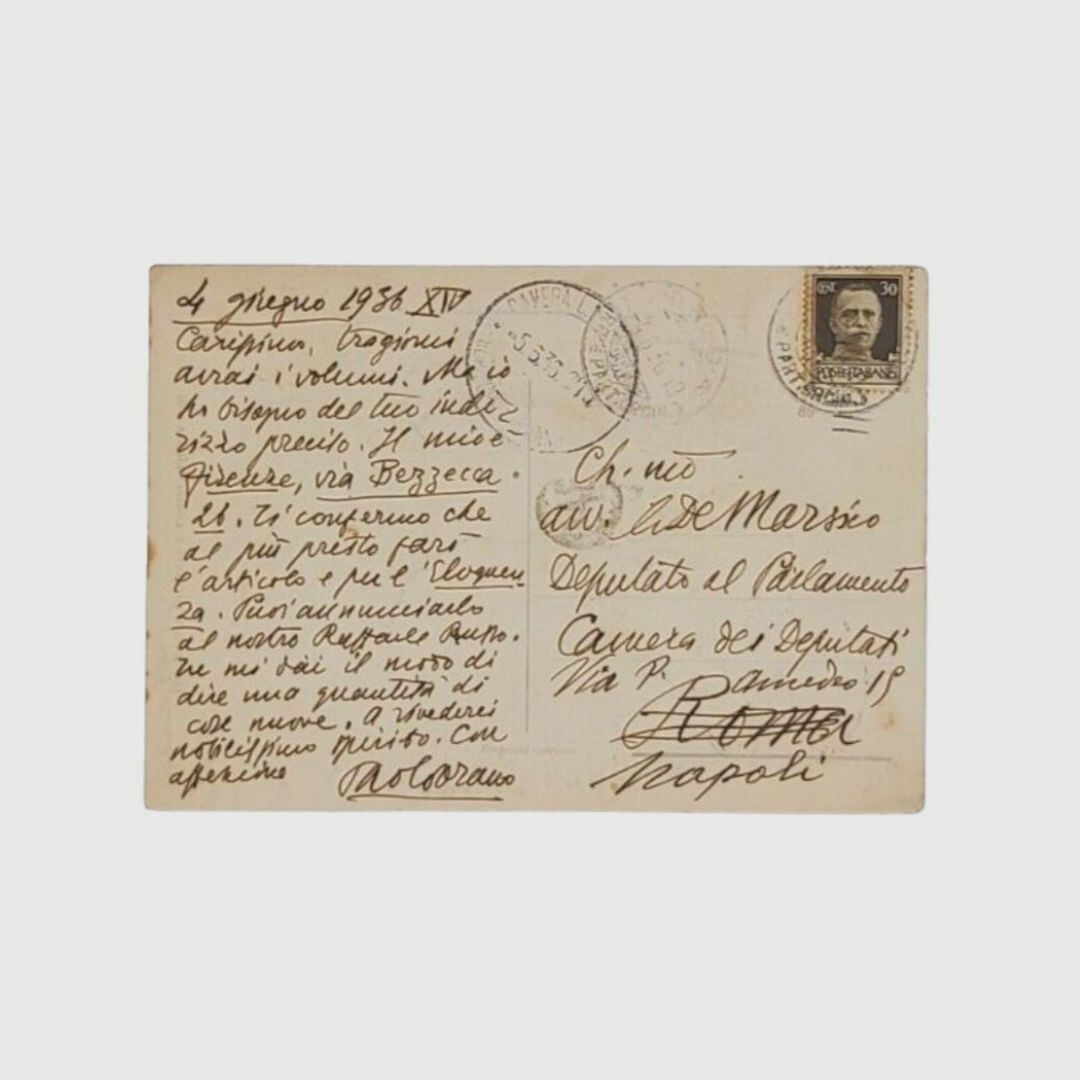 4 giugno 1936 XIV
Carissimo, tra giorni
avrai i volumi. Ma io
ho bisogno del tuo indi-
rizzo preciso. Il mio è
Firenze, via Bezzecca
26. Ti confermo che
al più presto farò
l'articolo e per l'Eloquen-
za. Puoi annunciarlo
al nostro Raffaele Russo.
Tu mi dai il modo di
dire una quantità di
cose nuove. A rivederci
nobilissimo spirito. Con
affezione Paolo Orano
CAMERA
CENT 30
POSTE ITALIANE
Ch. mo
avv. De Marsico
Deputato al Parlamento
Camera dei Deputati
Via P. Amedeo 15
Roma
Napoli